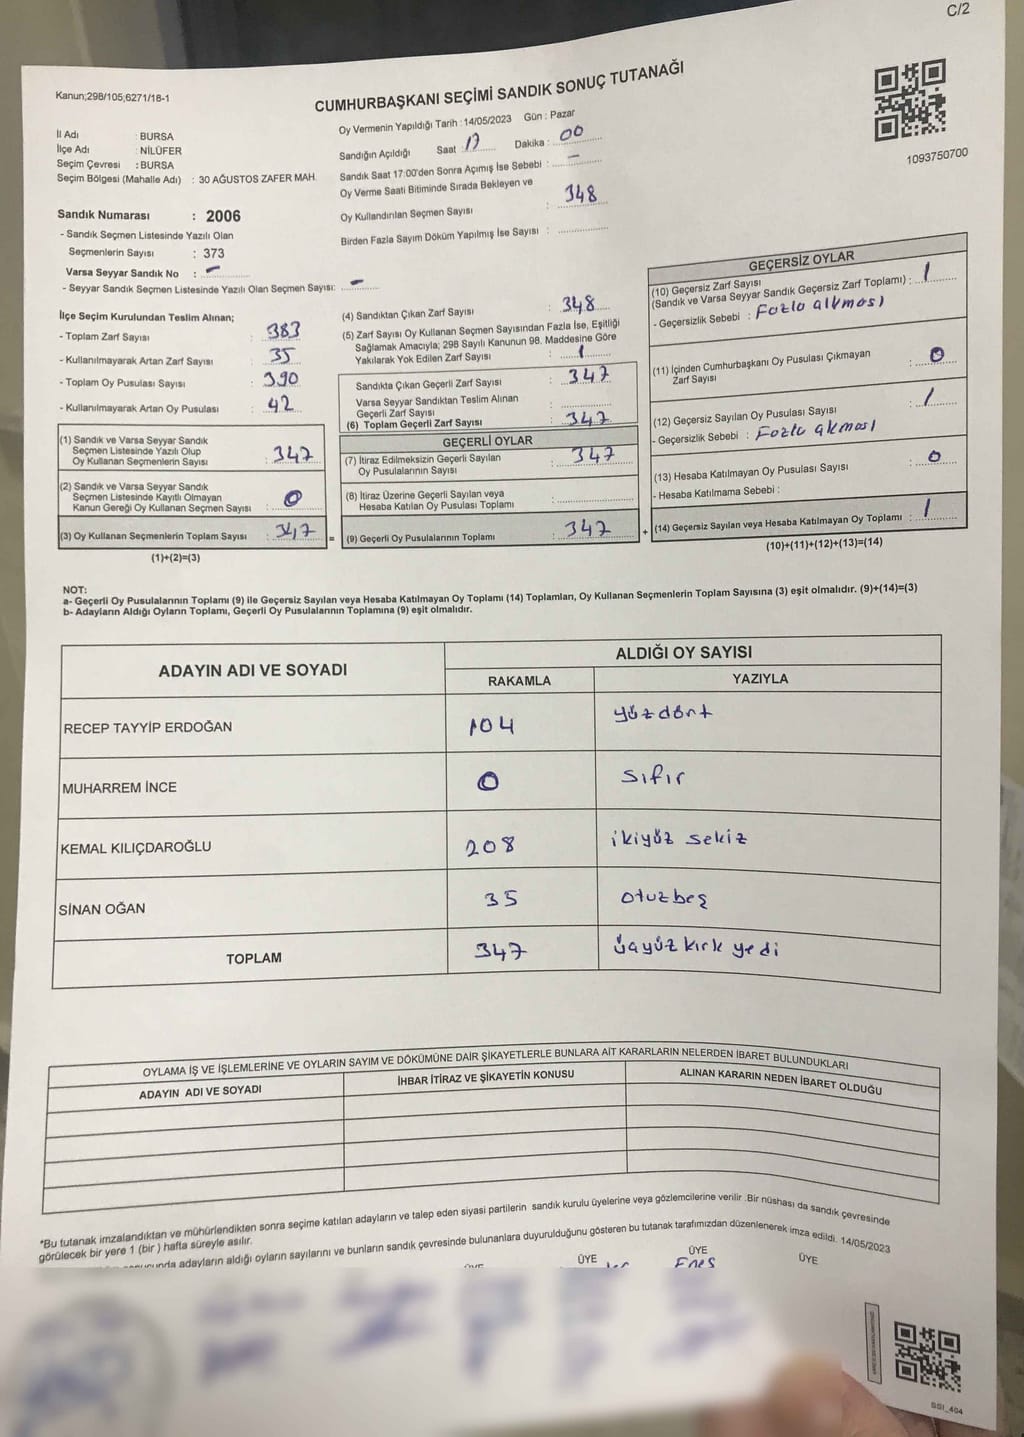 C/2
Kanun;298/105;6271/18-1
CUMHURBAŞKANI SEÇİMİ SANDIK SONUÇ TUTANAĞI
1093750700
İl Adı : BURSA
İlçe Adı : NİLÜFER
Seçim Çevresi : BURSA
Seçim Bölgesi (Mahalle Adı) : 30 AĞUSTOS ZAFER MAH.
Oy Vermenin Yapıldığı Tarih : 14/05/2023 Gün : Pazar
Sandığın Açıldığı Saat : 17 Dakika : 00
Sandık Saat 17:00'den Sonra Açımış İse Sebebi : –
Oy Verme Saati Bitiminde Sırada Bekleyen ve
Oy Kullandırılan Seçmen Sayısı : 348
Birden Fazla Sayım Döküm Yapılmış İse Sayısı :
Sandık Numarası : 2006
- Sandık Seçmen Listesinde Yazılı Olan
Seçmenlerin Sayısı : 373
Varsa Seyyar Sandık No : –
- Seyyar Sandık Seçmen Listesinde Yazılı Olan Seçmen Sayısı: –
İlçe Seçim Kurulundan Teslim Alınan;
- Toplam Zarf Sayısı : 383
- Kullanılmayarak Artan Zarf Sayısı : 35
- Toplam Oy Pusulası Sayısı : 390
- Kullanılmayarak Artan Oy Pusulası : 42
(1) Sandık ve Varsa Seyyar Sandık
Seçmen Listesinde Yazılı Olup
Oy Kullanan Seçmenlerin Sayısı : 347
(2) Sandık ve Varsa Seyyar Sandık
Seçmen Listesinde Kayıtlı Olmayan
Kanun Gereği Oy Kullanan Seçmen Sayısı : 0
(3) Oy Kullanan Seçmenlerin Toplam Sayısı : 347 =
(1)+(2)=(3)
(4) Sandıktan Çıkan Zarf Sayısı : 348
(5) Zarf Sayısı Oy Kullanan Seçmen Sayısından Fazla İse, Eşitliği
Sağlamak Amacıyla; 298 Sayılı Kanunun 98. Maddesine Göre
Yakılarak Yok Edilen Zarf Sayısı : 1
Sandıkta Çıkan Geçerli Zarf Sayısı : 347
Varsa Seyyar Sandıktan Teslim Alınan
Geçerli Zarf Sayısı :
(6) Toplam Geçerli Zarf Sayısı : 347
GEÇERLİ OYLAR
(7) İtiraz Edilmeksizin Geçerli Sayılan
Oy Pusulalarının Sayısı : 347
(8) İtiraz Üzerine Geçerli Sayılan veya
Hesaba Katılan Oy Pusulası Toplamı :
(9) Geçerli Oy Pusulalarının Toplamı : 347 +
GEÇERSİZ OYLAR
(10) Geçersiz Zarf Sayısı
(Sandık ve Varsa Seyyar Sandık Geçersiz Zarf Toplamı) : 1
- Geçersizlik Sebebi : Fazla çıkması
(11) İçinden Cumhurbaşkanı Oy Pusulası Çıkmayan
Zarf Sayısı : 0
(12) Geçersiz Sayılan Oy Pusulası Sayısı : 1
- Geçersizlik Sebebi : Fazla çıkması
(13) Hesaba Katılmayan Oy Pusulası Sayısı : 0
- Hesaba Katılmama Sebebi :
(14) Geçersiz Sayılan veya Hesaba Katılmayan Oy Toplamı : 1
(10)+(11)+(12)+(13)=(14)
NOT:
a- Geçerli Oy Pusulalarının Toplamı (9) ile Geçersiz Sayılan veya Hesaba Katılmayan Oy Toplamı (14) Toplamları, Oy Kullanan Seçmenlerin Toplam Sayısına (3) eşit olmalıdır. (9)+(14)=(3)
b- Adayların Aldığı Oyların Toplamı, Geçerli Oy Pusulalarının Toplamına (9) eşit olmalıdır.
ADAYIN ADI VE SOYADI ALDIĞI OY SAYISI
RAKAMLA YAZIYLA
RECEP TAYYİP ERDOĞAN 104 yüzdört
MUHARREM İNCE 0 sıfır
KEMAL KILIÇDAROĞLU 208 ikiyüz sekiz
SİNAN OĞAN 35 otuzbeş
TOPLAM 347 üçyüz kırk yedi
OYLAMA İŞ VE İŞLEMLERİNE VE OYLARIN SAYIM VE DÖKÜMÜNE DAİR ŞİKAYETLERLE BUNLARA AİT KARARLARIN NELERDEN İBARET BULUNDUKLARI
ADAYIN ADI VE SOYADI İHBAR İTİRAZ VE ŞİKAYETİN KONUSU ALINAN KARARIN NEDEN İBARET OLDUĞU
*Bu tutanak imzalandıktan ve mühürlendikten sonra seçime katılan adayların ve talep eden siyasi partilerin sandık kurulu üyelerine veya gözlemcilerine verilir .Bir nüshası da sandık çevresinde
görülecek bir yere 1 (bir ) hafta süreyle asılır.
adayların aldığı oyların sayılarını ve bunların sandık çevresinde bulunanlara duyurulduğunu gösteren bu tutanak tarafımızdan düzenlenerek imza edildi. 14/05/2023
ÜYE ÜYE ÜYE ÜYE
Enes
SSI_404